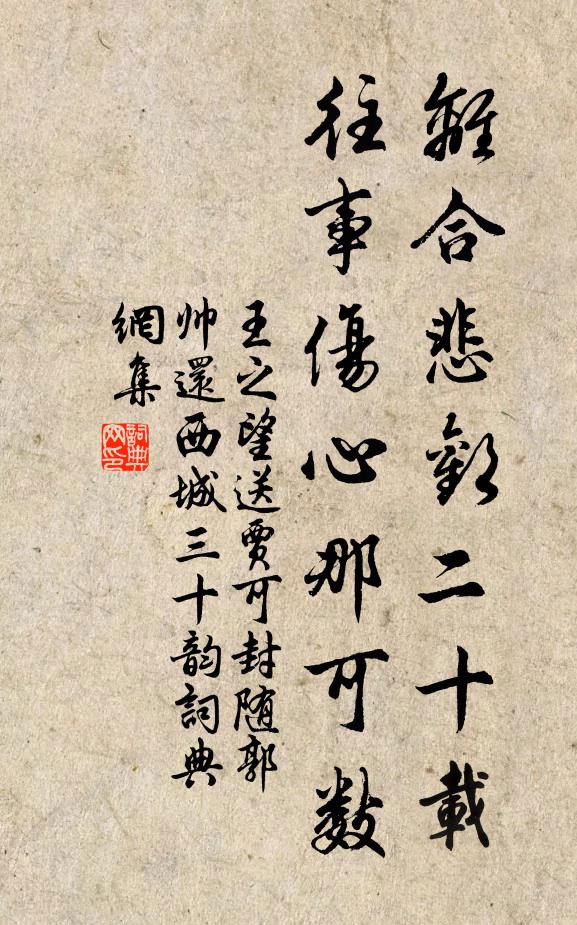 離合悲歡二十載
往事傷心那可數
王之望送賈可封随郭
帅還西城三十韵詞典
網集
詞典
网印